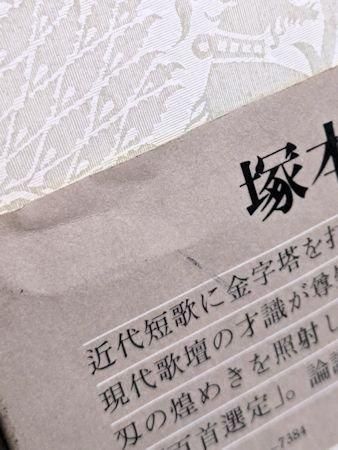 塚本
近代短歌に金字塔を打
現代歌壇の才識が
刃の煌めきを照射し
百首選定」。論
-7384